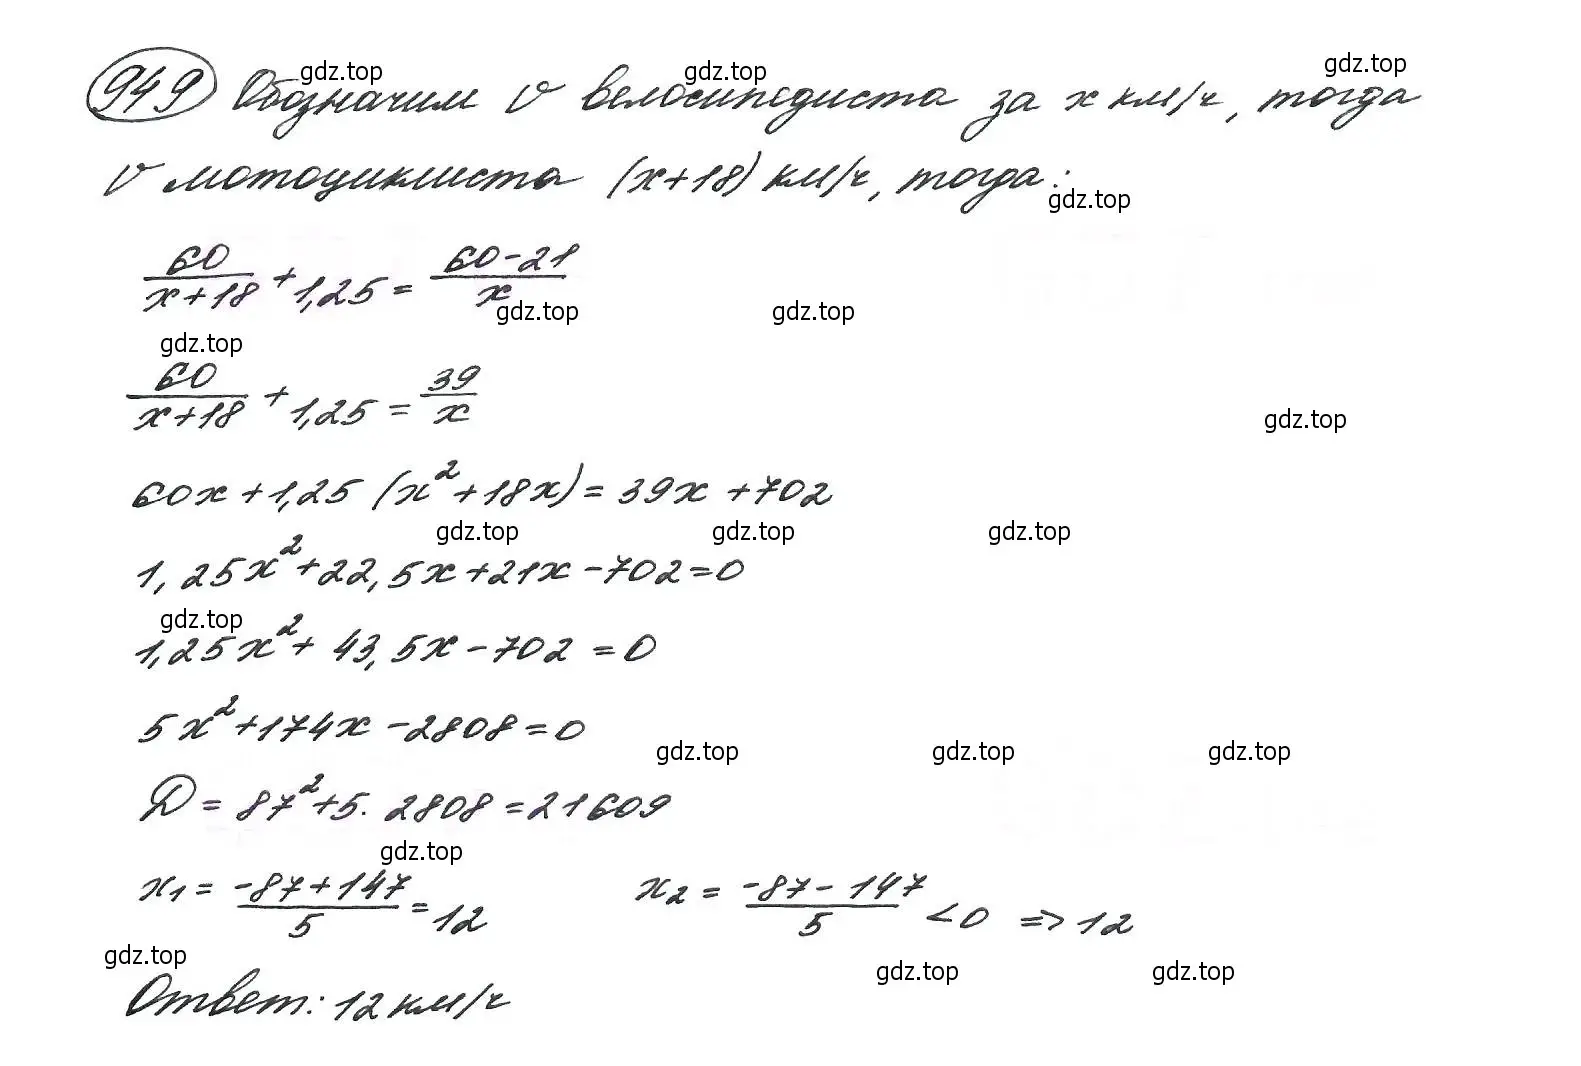 949 Обозначим v велосипедиста за x км/ч, тогда
v мотоциклиста (x+18) км/ч, тогда:
60/(x+18) + 1,25 = (60-21)/x
60/(x+18) + 1,25 = 39/x
60x+1,25 (x²+18x)= 39x +702
1,25x²+22,5x+21x-702=0
1,25x²+ 43,5x-702 =0
5x²+174x-2808=0
D = 87²+5·2808=21609
x₁ = (-87+147)/5 = 12 x₂ = (-87-147)/5 <0 => 12
Ответ: 12 км/ч
gdz.top gdz.top gdz.top
gdz.top
gdz.top gdz.top
gdz.top
gdz.top
gdz.top gdz.top gdz.top
gdz.top
gdz.top gdz.top gdz.top
gdz.top
gdz.top
gdz.top gdz.top